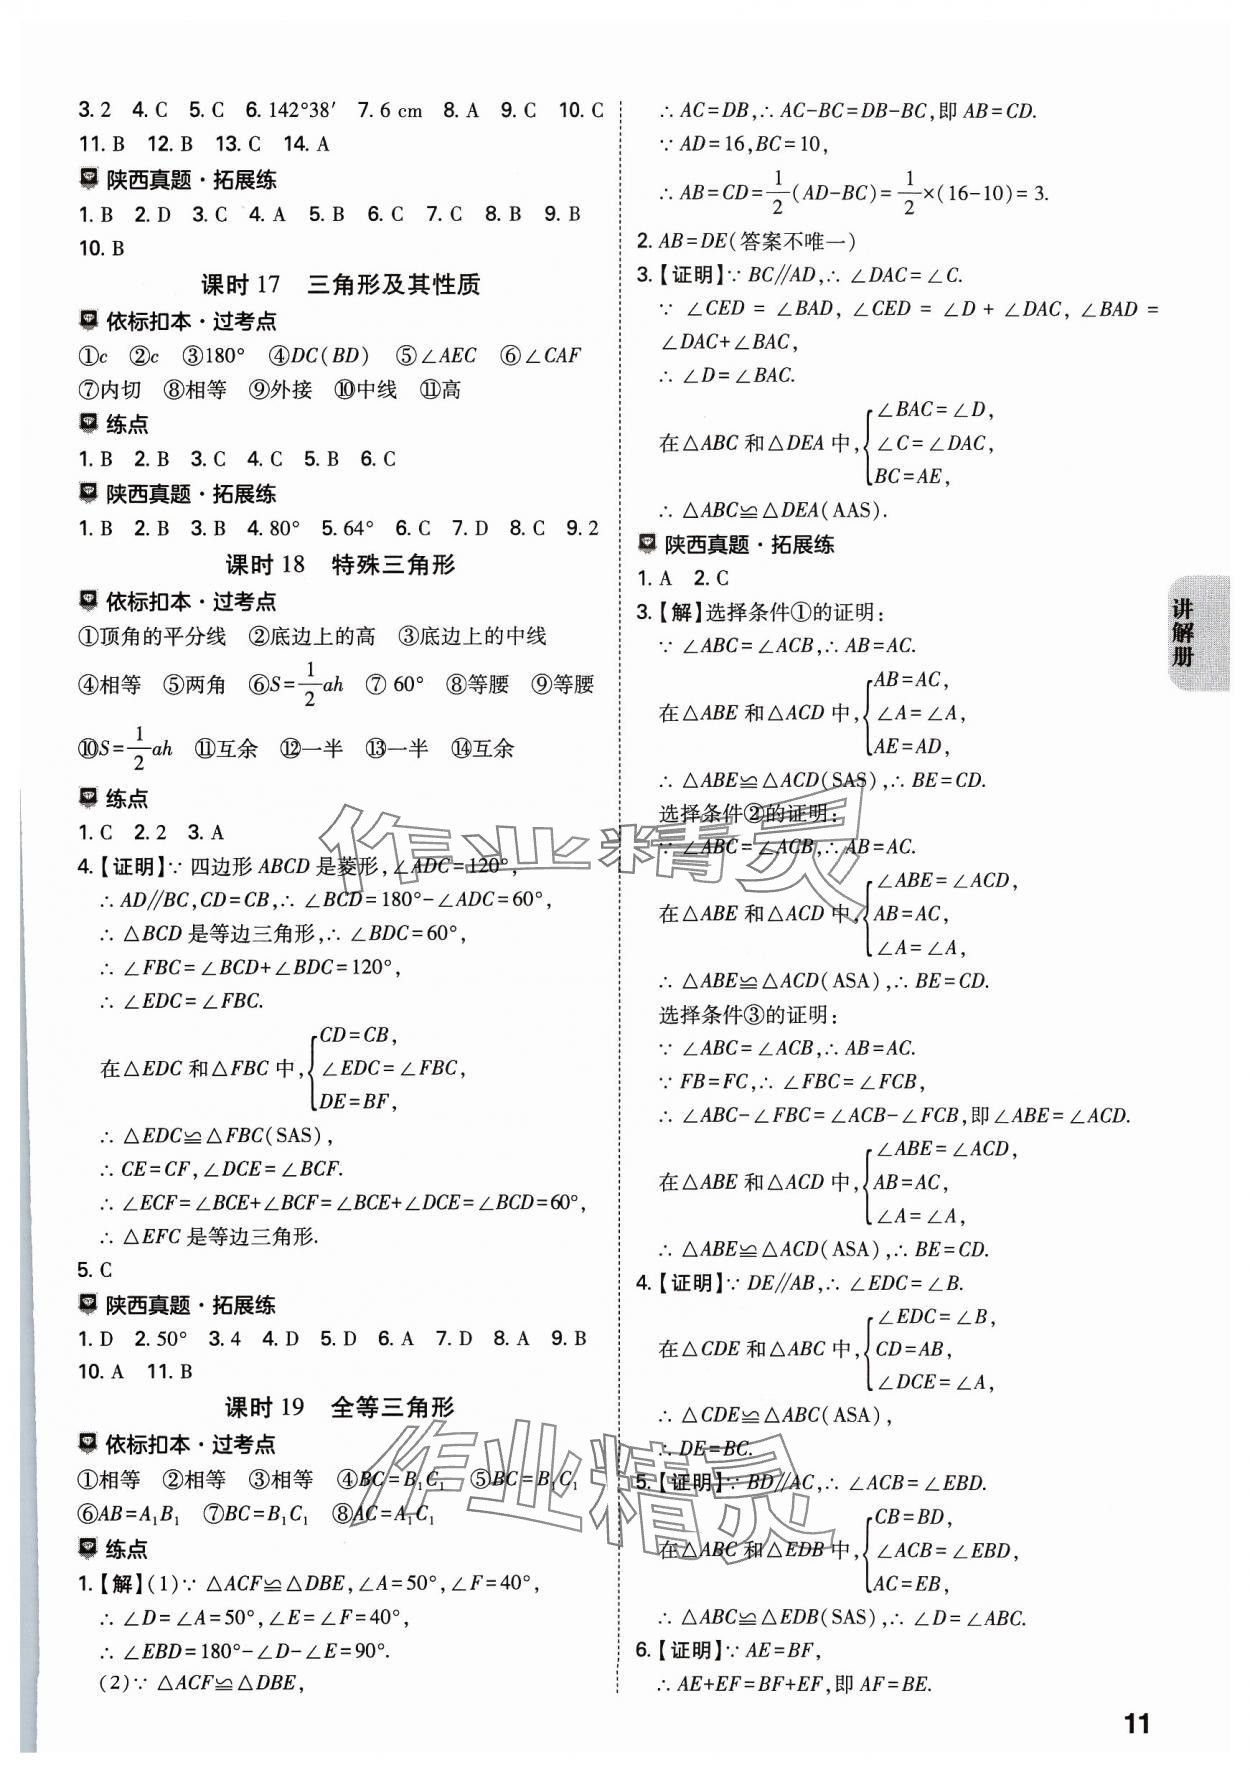 3. 2 4. C 5. C 6. 142°38′ 7. 6 cm 8. A 9. C 10. C
11. B 12. B 13. C 14. A
陕西真题·拓展练
1. B 2. D 3. C 4. A 5. B 6. C 7. C 8. B 9. B
10. B
课时 17 三角形及其性质
依标扣本·过考点
①c ②c ③180° ④DC(BD) ⑤∠AEC ⑥∠CAF
⑦内切 ⑧相等 ⑨外接 ⑩中线 ⑪高
练点
1. B 2. B 3. C 4. C 5. B 6. C
陕西真题·拓展练
1. B 2. B 3. B 4. 80° 5. 64° 6. C 7. D 8. C 9. 2
课时 18 特殊三角形
依标扣本·过考点
①顶角的平分线 ②底边上的高 ③底边上的中线
④相等 ⑤两角 ⑥S=1/2ah ⑦60° ⑧等腰 ⑨等腰
⑩S=1/2ah ⑪互余 ⑫一半 ⑬一半 ⑭互余
练点
1. C 2. 2 3. A
4.【证明】∵ 四边形 ABCD 是菱形,∠ADC=120°,
∴ AD∥BC,CD=CB,∴ ∠BCD=180°-∠ADC=60°,
∴ △BCD 是等边三角形,∴ ∠BDC=60°,
∴ ∠FBC=∠BCD+∠BDC=120°,
∴ ∠EDC=∠FBC.
在△EDC 和△FBC 中,{CD=CB,
∠EDC=∠FBC,
DE=BF,
∴ △EDC≌△FBC(SAS),
∴ CE=CF,∠DCE=∠BCF.
∴ ∠ECF=∠BCE+∠BCF=∠BCE+∠DCE=∠BCD=60°,
∴ △EFC 是等边三角形.
5. C
陕西真题·拓展练
1. D 2. 50° 3. 4 4. D 5. D 6. A 7. D 8. A 9. B
10. A 11. B
课时 19 全等三角形
依标扣本·过考点
①相等 ②相等 ③相等 ④BC=B₁C₁ ⑤BC=B₁C₁
⑥AB=A₁B₁ ⑦BC=B₁C₁ ⑧AC=A₁C₁
练点
1.【解】(1)∵ △ACF≌△DBE,∠A=50°,∠F=40°,
∴ ∠D=∠A=50°,∠E=∠F=40°,
∴ ∠EBD=180°-∠D-∠E=90°.
(2)∵ △ACF≌△DBE,
∴ AC=DB,∴ AC-BC=DB-BC,即 AB=CD.
∵ AD=16,BC=10,
∴ AB=CD=1/2(AD-BC)=1/2×(16-10)=3.
2. AB=DE(答案不唯一)
3.【证明】∵ BC∥AD,∴ ∠DAC=∠C.
∵ ∠CED = ∠BAD, ∠CED = ∠D + ∠DAC, ∠BAD =
∠DAC+∠BAC,
∴ ∠D=∠BAC.
在△ABC 和△DEA 中,{∠BAC=∠D,
∠C=∠DAC,
BC=AE,
∴ △ABC≌△DEA(AAS).
陕西真题·拓展练
1. A 2. C
3.【解】选择条件①的证明:
∵ ∠ABC=∠ACB,∴ AB=AC.
在△ABE 和△ACD 中,{AB=AC,
∠A=∠A,
AE=AD,
∴ △ABE≌△ACD(SAS),∴ BE=CD.
选择条件②的证明:
∵ ∠ABC=∠ACB,∴ AB=AC.
在△ABE 和△ACD 中,{∠ABE=∠ACD,
AB=AC,
∠A=∠A,
∴ △ABE≌△ACD(ASA),∴ BE=CD.
选择条件③的证明:
∵ ∠ABC=∠ACB,∴ AB=AC.
∵ FB=FC,∴ ∠FBC=∠FCB,
∴ ∠ABC-∠FBC=∠ACB-∠FCB,即∠ABE=∠ACD.
在△ABE 和△ACD 中,{∠ABE=∠ACD,
AB=AC,
∠A=∠A,
∴ △ABE≌△ACD(ASA),∴ BE=CD.
4.【证明】∵ DE∥AB,∴ ∠EDC=∠B.
在△CDE 和△ABC 中,{∠EDC=∠B,
CD=AB,
∠DCE=∠A,
∴ △CDE≌△ABC(ASA),
∴ DE=BC.
5.【证明】∵ BD∥AC,∴ ∠ACB=∠EBD.
在△ABC 和△EDB 中,{CB=BD,
∠ACB=∠EBD,
AC=EB,
∴ △ABC≌△EDB(SAS),∴ ∠D=∠ABC.
6.【证明】∵ AE=BF,
∴ AE+EF=BF+EF,即 AF=BE.
讲解册
11
作业精灵
作业精灵